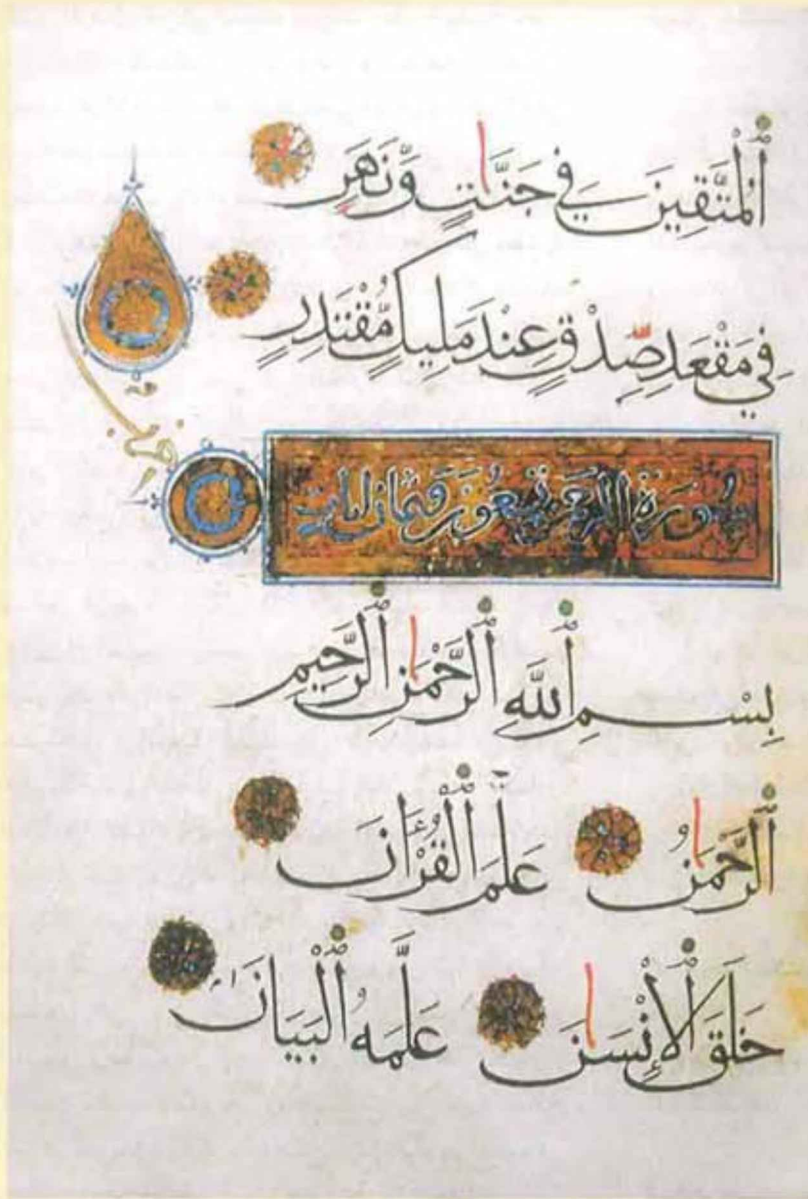 اَ۬لْمُتَّقِينَ فِي جَنَّاتٍ وَّنَهَرٍ
فِي مَقْعَدِ صِدْقٍ عِنْدَ مَلِيكٍ مُّقْتَدِرٍ
سورة الرحمن سبعون وثمان آيات
بِسْمِ اِ۬للَّهِ اِ۬لرَّحْمَانِ اِ۬لرَّحِيمِ
اَ۬لرَّحْمَانُ عَلَّمَ اَ۬لْقُرْءَانَ
خَلَقَ اَ۬لْإِنْسَانَ عَلَّمَهُ اُ۬لْبَيَانَ